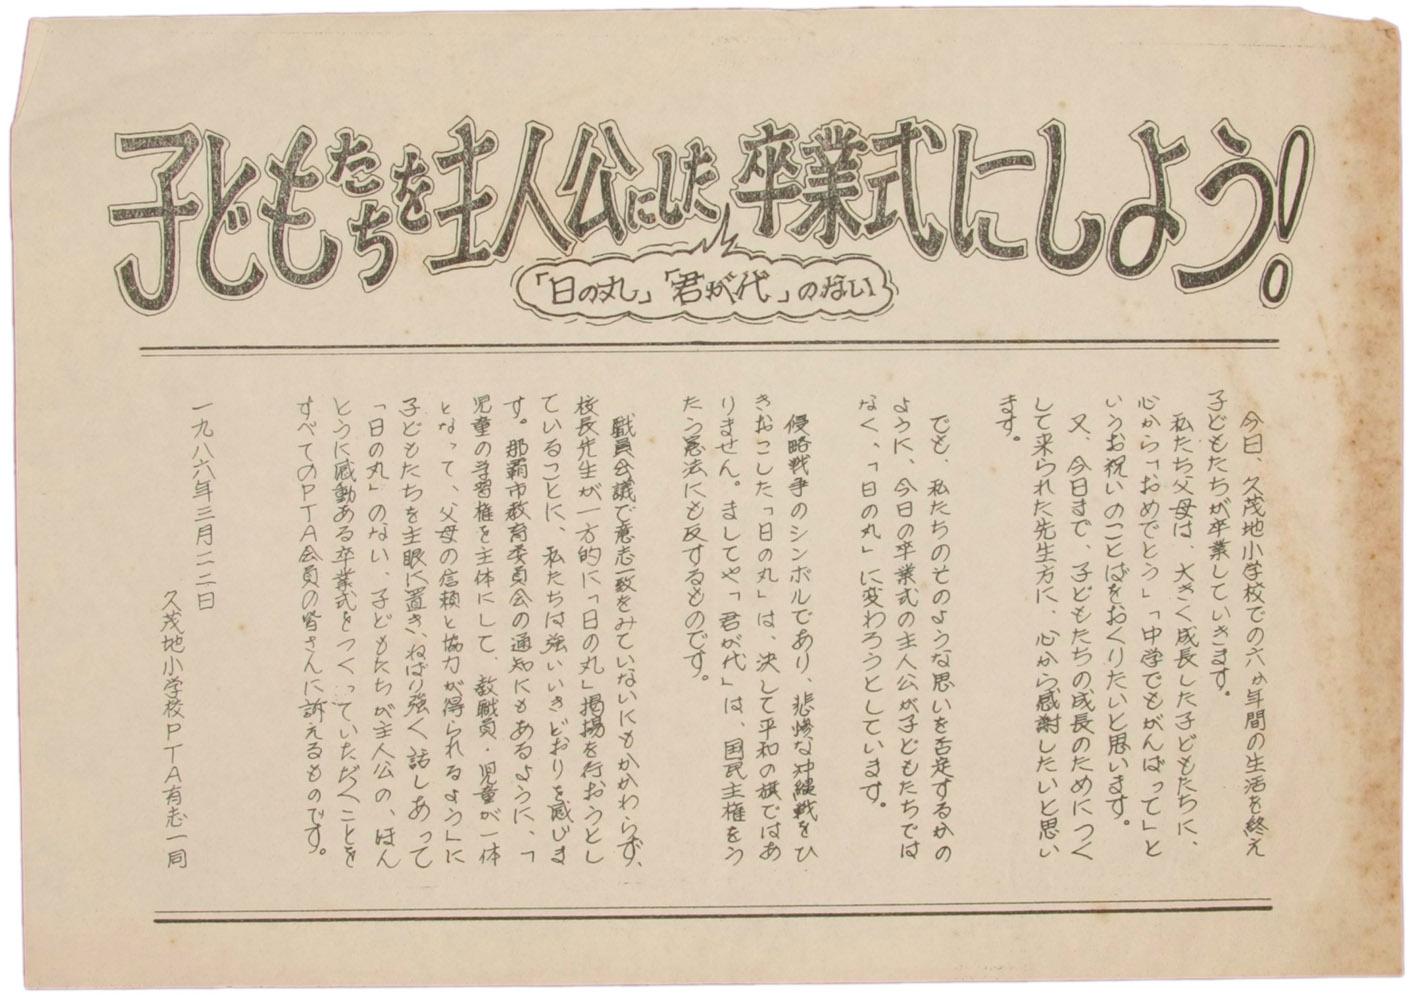 子どもたちを主人公にした卒業式にしよう!
「日の丸」「君が代」のない
今日、久茂地小学校での六ヵ年間の生活を終え
子どもたちが卒業していきます。
私たち父母は、大きく成長した子どもたちに、
心から「おめでとう」「中学でもがんばって」と
いうお祝いのことばをおくりたいと思います。
又、今日まで、子どもたちの成長のためにつく
して来られた先生方に、心から感謝したいと思い
ます。
でも、私たちのそのような思いを否定するかの
ように、今日の卒業式の主人公が子どもたちでは
なく、「日の丸」に変わろうとしています。
侵略戦争のシンボルであり、悲惨な沖縄戦をひ
きおこした「日の丸」は、決して平和の旗ではあ
りません。ましてや「君が代」は、国民主権をう
たう憲法にも反するものです。
職員会議で意志一致をみていないにもかかわらず、
校長先生が一方的に「日の丸」掲揚を行おうとし
ていることに、私たちは強いいきどおりを感じま
す。那覇市教育委員会の通知にもあるように、「
児童の学習権を主体にして、教職員・児童が一体
となって、父母の信頼と協力が得られるよう」に
子どもたちを主眼に置き、ねばり強く話しあって
「日の丸」のない、子どもたちが主人公の、ほん
とうに感動ある卒業式をつくっていただくことを
すべてのPTA会員の皆さんに訴えるものです。
一九八六年三月二二日
久茂地小学校PTA有志一同